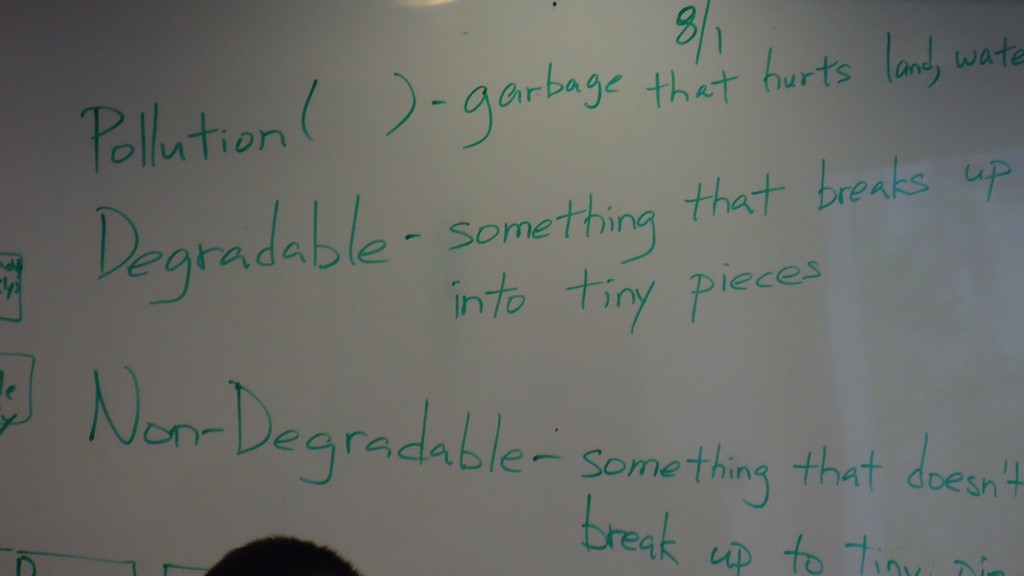 8/1
Pollution ( ) - garbage that hurts land, wate
Degradable - something that breaks up
into tiny pieces
Non-Degradable - something that doesn't
break up to tiny